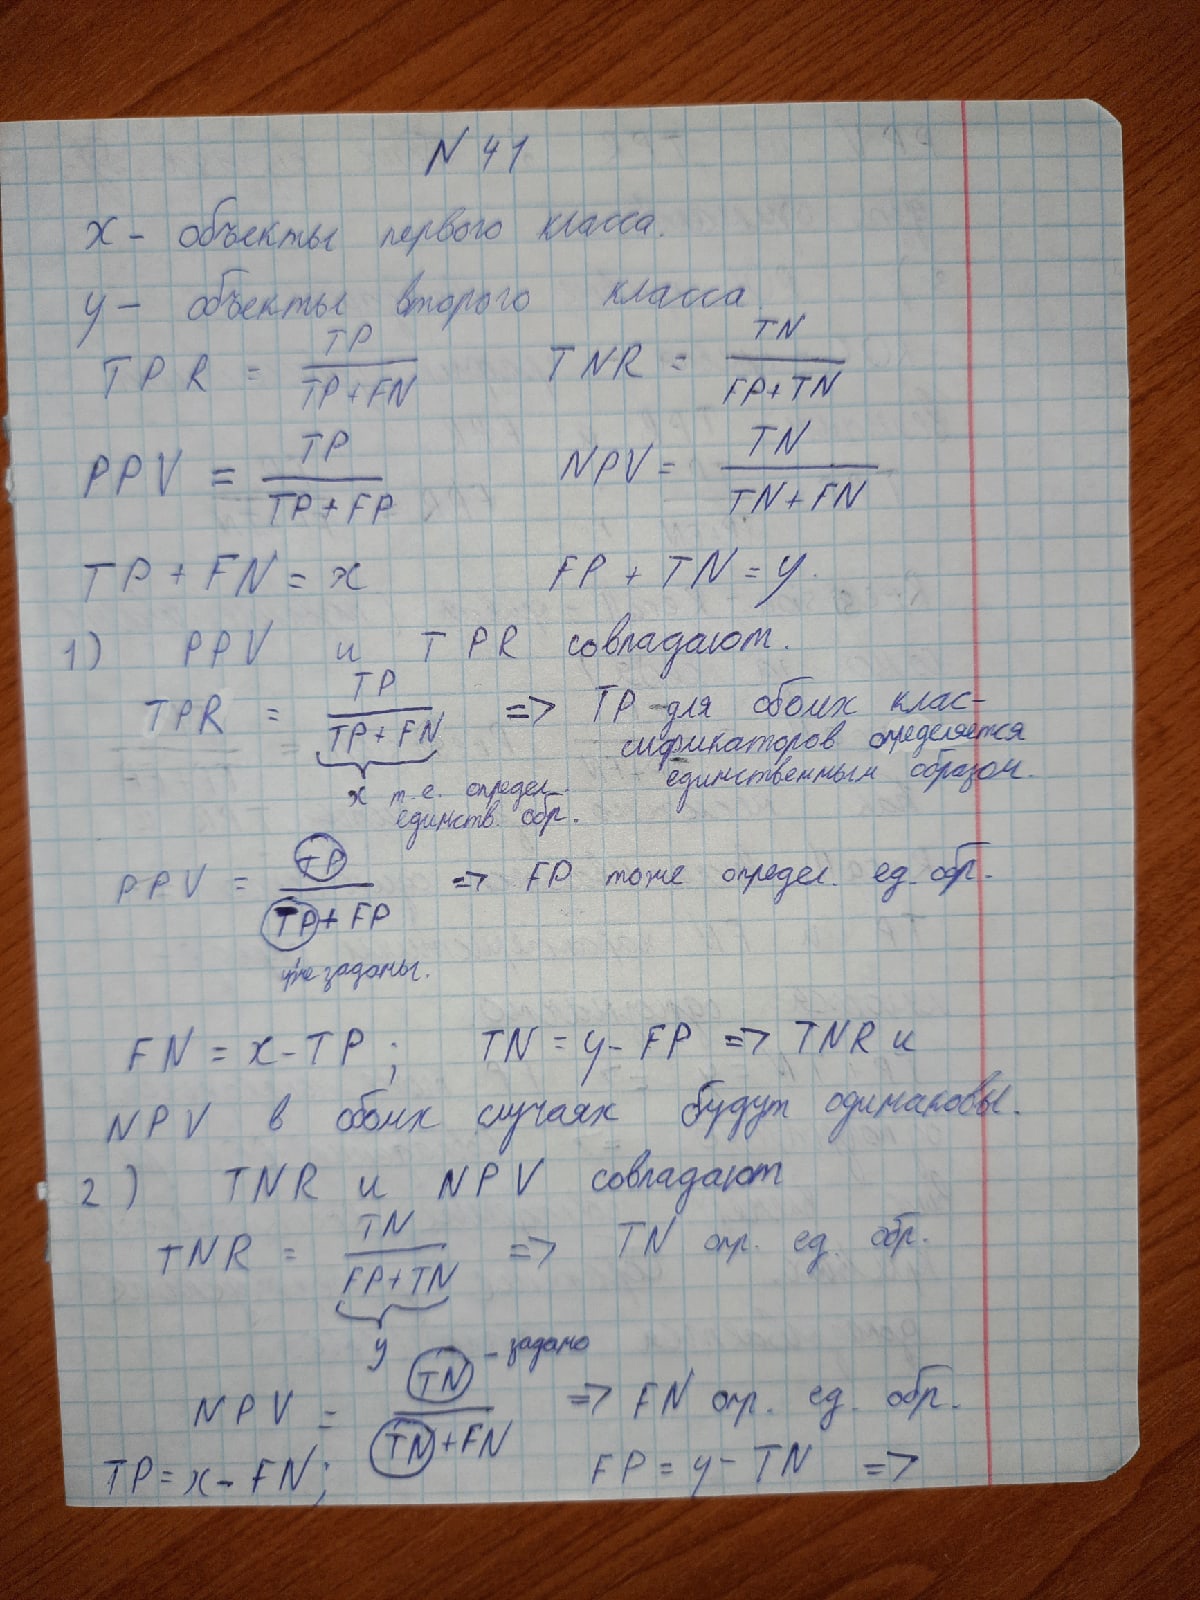 N 41
x - объекты первого класса.
y - объекты второго класса.
TPR = TP / (TP + FN)    TNR = TN / (FP + TN)
PPV = TP / (TP + FP)    NPV = TN / (TN + FN)
TP + FN = x    FP + TN = y.
1) PPV и TPR совпадают.
TPR = TP / (TP + FN) => TP для обоих клас-
сификаторов определяется
единственным образом.
x т.е. определ.
единств. обр.
PPV = TP / (TP + FP) => FP тоже определ. ед. обр.
уже заданы.
FN = x - TP; TN = y - FP => TNR и
NPV в обоих случаях будут одинаковы.
2) TNR и NPV совпадают
TNR = TN / (FP + TN) => TN опр. ед. обр.
y
NPV = TN / (TN + FN) => FN опр. ед. обр.
- задано
TP = x - FN; FP = y - TN =>